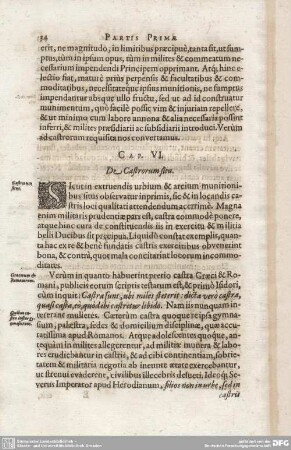 34 PARTIS PRIMÆ
erit, ne magnitudo, in limitibus præcipuè, tanta sit, ut sum-
ptus, tùm in ipsum opus, tùm in milites & commeatum ne-
cessarium impendendi Principem opprimant. Atq; hinc e-
lectio fiat, maturè priùs perpensis & facultatibus & com-
moditatibus, necessitateque ipsius munitionis, ne sumptus
impendantur absque ullo fructu, sed ut ad id construatur
munimentum, quo facilè possit vim & injuriam repellere,
& ut minimo cum labore annona & alia necessaria possint
inferri, & milites præsidiarii ac subsidiarii introduci. Verùm
ad castrorum requisita nos convertamus.
CAP. VI.
De Castrorum situ.
Castrorum
situs.
SIcuti in extruendis urbium & arcium munitioni-
bus situs observatur inprimis, sic & in locandis ca-
stris loci qualitas attendenda ac cerimæ. Magna
enim militaris prudentiæ pars est, castra commodè ponere,
atque hinc cura de constituendis iis in exercitu & militia
belli Ducibus sit præcipua. Liquidò se constat exemplis, quan-
ta hac ex re & benè fundatis castris exercitibus obvenerint
bona, &, contrà, quot mala concitarint locorum incom-
moditates.
Verùm in quanto habuerint pretio castra Græci & Ro-
mani, publicè eorum scriptis testatum est, & primò Isidori,
cùm inquit: Castra sunt, ubi miles steterit: dicta verò castra,
quasi casta, eò, quòd ibi castretur libido. Nam iis nunquam in-
tererant mulieres. Cæterum castra quoque et ipsa gymna-
sium, palæstra, sedes & domicilium disciplinæ, quæ accu-
ratissima apud Romanos. Atque adolescentes quoque, an-
tequam in milites allegerentur, ad militiæ munera & labo-
res erudiebantur in castris, & ad cibi continentiam, sobrie-
tatem & militaria negotia ab ineunte ætate exercebantur,
ut strenui evaderent, civilibus illecebris desueti. Ideo q; Se-
verus Imperator apud Herodianum, filios non in urbe, sed in
castris